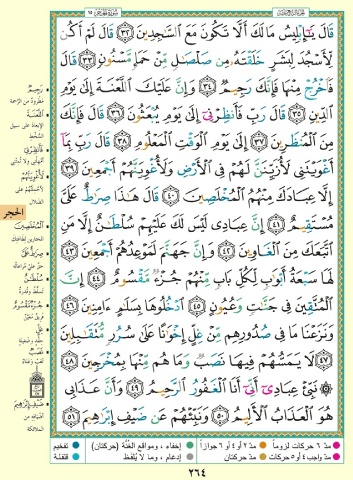 قَالَ يَٰٓإِبْلِيسُ مَا لَكَ أَلَّا تَكُونَ مَعَ ٱلسَّٰجِدِينَ ٣٢ قَالَ لَمْ أَكُن
لِّأَسْجُدَ لِبَشَرٍ خَلَقْتَهُۥ مِن صَلْصَٰلٍ مِّنْ حَمَإٍ مَّسْنُونٍ ٣٣ قَالَ
فَٱخْرُجْ مِنْهَا فَإِنَّكَ رَجِيمٌ ٣٤ وَإِنَّ عَلَيْكَ ٱللَّعْنَةَ إِلَىٰ يَوْمِ
ٱلدِّينِ ٣٥ قَالَ رَبِّ فَأَنظِرْنِىٓ إِلَىٰ يَوْمِ يُبْعَثُونَ ٣٦ قَالَ فَإِنَّكَ
مِنَ ٱلْمُنظَرِينَ ٣٧ إِلَىٰ يَوْمِ ٱلْوَقْتِ ٱلْمَعْلُومِ ٣٨ قَالَ رَبِّ بِمَآ
أَغْوَيْتَنِى لَأُزَيِّنَنَّ لَهُمْ فِى ٱلْأَرْضِ وَلَأُغْوِيَنَّهُمْ أَجْمَعِينَ ٣٩
إِلَّا عِبَادَكَ مِنْهُمُ ٱلْمُخْلَصِينَ ٤٠ قَالَ هَٰذَا صِرَٰطٌ عَلَىَّ
مُسْتَقِيمٌ ٤١ إِنَّ عِبَادِى لَيْسَ لَكَ عَلَيْهِمْ سُلْطَٰنٌ إِلَّا مَنِ
ٱتَّبَعَكَ مِنَ ٱلْغَاوِينَ ٤٢ وَإِنَّ جَهَنَّمَ لَمَوْعِدُهُمْ أَجْمَعِينَ ٤٣
لَهَا سَبْعَةُ أَبْوَٰبٍ لِّكُلِّ بَابٍ مِّنْهُمْ جُزْءٌ مَّقْسُومٌ ٤٤ إِنَّ
ٱلْمُتَّقِينَ فِى جَنَّٰتٍ وَعُيُونٍ ٤٥ ٱدْخُلُوهَا بِسَلَٰمٍ ءَامِنِينَ ٤٦
وَنَزَعْنَا مَا فِى صُدُورِهِم مِّنْ غِلٍّ إِخْوَٰنًا عَلَىٰ سُرُرٍ مُّتَقَٰبِلِينَ
٤٧ لَا يَمَسُّهُمْ فِيهَا نَصَبٌ وَمَا هُم مِّنْهَا بِمُخْرَجِينَ ٤٨
نَبِّئْ عِبَادِىٓ أَنِّىٓ أَنَا ٱلْغَفُورُ ٱلرَّحِيمُ ٤٩ وَأَنَّ عَذَابِى
هُوَ ٱلْعَذَابُ ٱلْأَلِيمُ ٥٠ وَنَبِّئْهُمْ عَن ضَيْفِ إِبْرَٰهِيمَ ٥١
رَجِيمٌ
اللَّعْنَةَ
فَأَنظِرْنِي
الحجر
الْمُخْلَصِينَ
صِرَاطٌ عَلَيَّ
سُلْطَانٌ
غِلٍّ
نَصَبٌ
ضَيْفِ إِبْرَاهِيمَ
الملائكة
مدّ ٦ حركات لزوماً
مدّ ٢ أو ٤ أو ٦ جوازاً
إخفاء ، ومواقع الغُنَّة (حركتان)
تفخيم
مدّ واجب ٤ أو ٥ حركات
مدّ حركتان
إدغام ، وما لا يُلفظ
قلقلة
٢٦٤